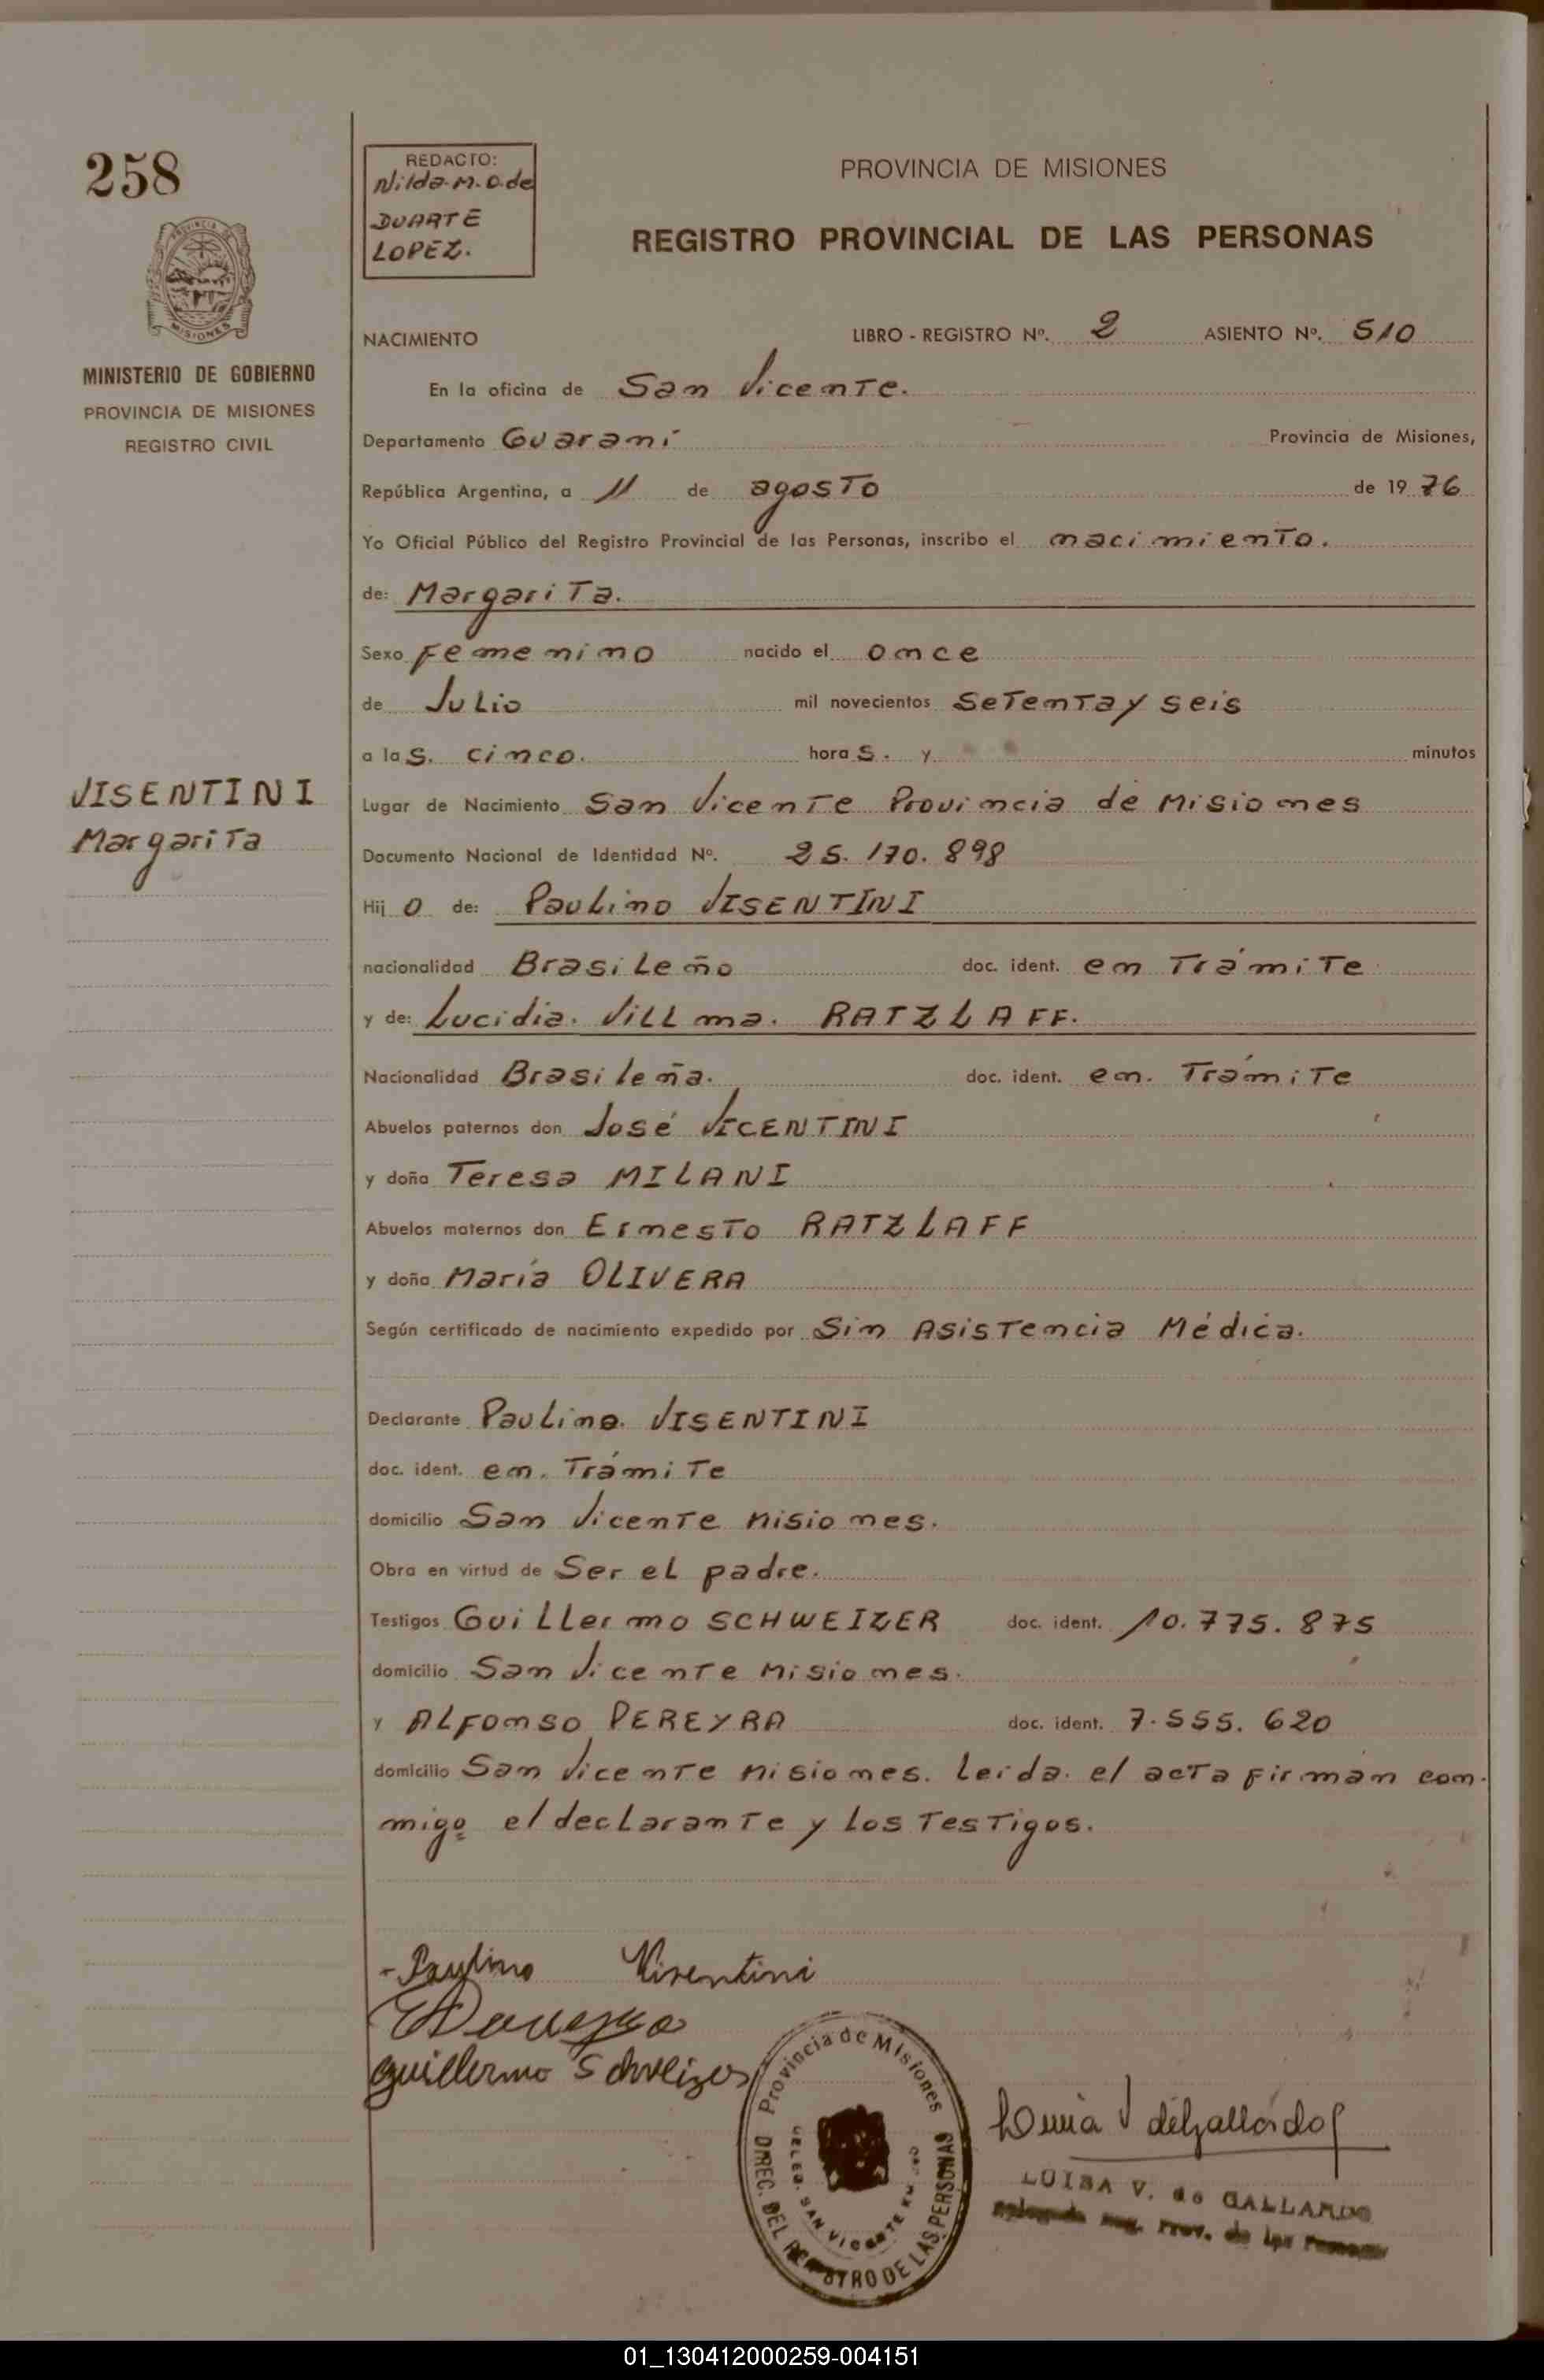 258
REDACTO:
Nilda-M.O.de
DUARTE
LOPEZ.
PROVINCIA DE MISIONES
REGISTRO PROVINCIAL DE LAS PERSONAS
PROVINCIA DE
MISIONES
MINISTERIO DE GOBIERNO
PROVINCIA DE MISIONES
REGISTRO CIVIL
NACIMIENTO LIBRO - REGISTRO Nº. 2 ASIENTO Nº. 510
En la oficina de San Vicente.
Departamento Guaraní Provincia de Misiones,
República Argentina, a 11 de agosto de 19 76
Yo Oficial Público del Registro Provincial de las Personas, inscribo el nacimiento.
de: Margarita.
Sexo Femenino nacido el once
de Julio mil novecientos setenta y seis
a las. cinco. horas. y minutos
VISENTINI
Margarita
Lugar de Nacimiento San Vicente Provincia de Misiones
Documento Nacional de Identidad Nº. 25.170.898
Hij o de: Paulino VISENTINI
nacionalidad Brasileño doc. ident. en Trámite
y de: Lucidia. Villma. RATZLAFF.
Nacionalidad Brasileña. doc. ident. en. Trámite
Abuelos paternos don José VICENTINI
y doña Teresa MILANI
Abuelos maternos don Ernesto RATZLAFF
y doña María OLIVERA
Según certificado de nacimiento expedido por Sin Asistencia Médica.
Declarante Paulino. VISENTINI
doc. ident. en. Trámite
domicilio San Vicente Misiones.
Obra en virtud de Ser el padre.
Testigos Guillermo SCHWEIZER doc. ident. 10.775.875
domicilio San Vicente Misiones.
y Alfonso PEREYRA doc. ident. 7.555.620
domicilio San Vicente Misiones. Leída. el acta firman con-
migo el declarante y los Testigos.
- Paulino Visentini
Guillermo Schveizer
Provincia de Misiones
DIREC. DEL REGISTRO DE LAS PERSONAS
DELEG. SAN VICENTE KM.
LUISA V. de GALLARDO
01_130412000259-004151